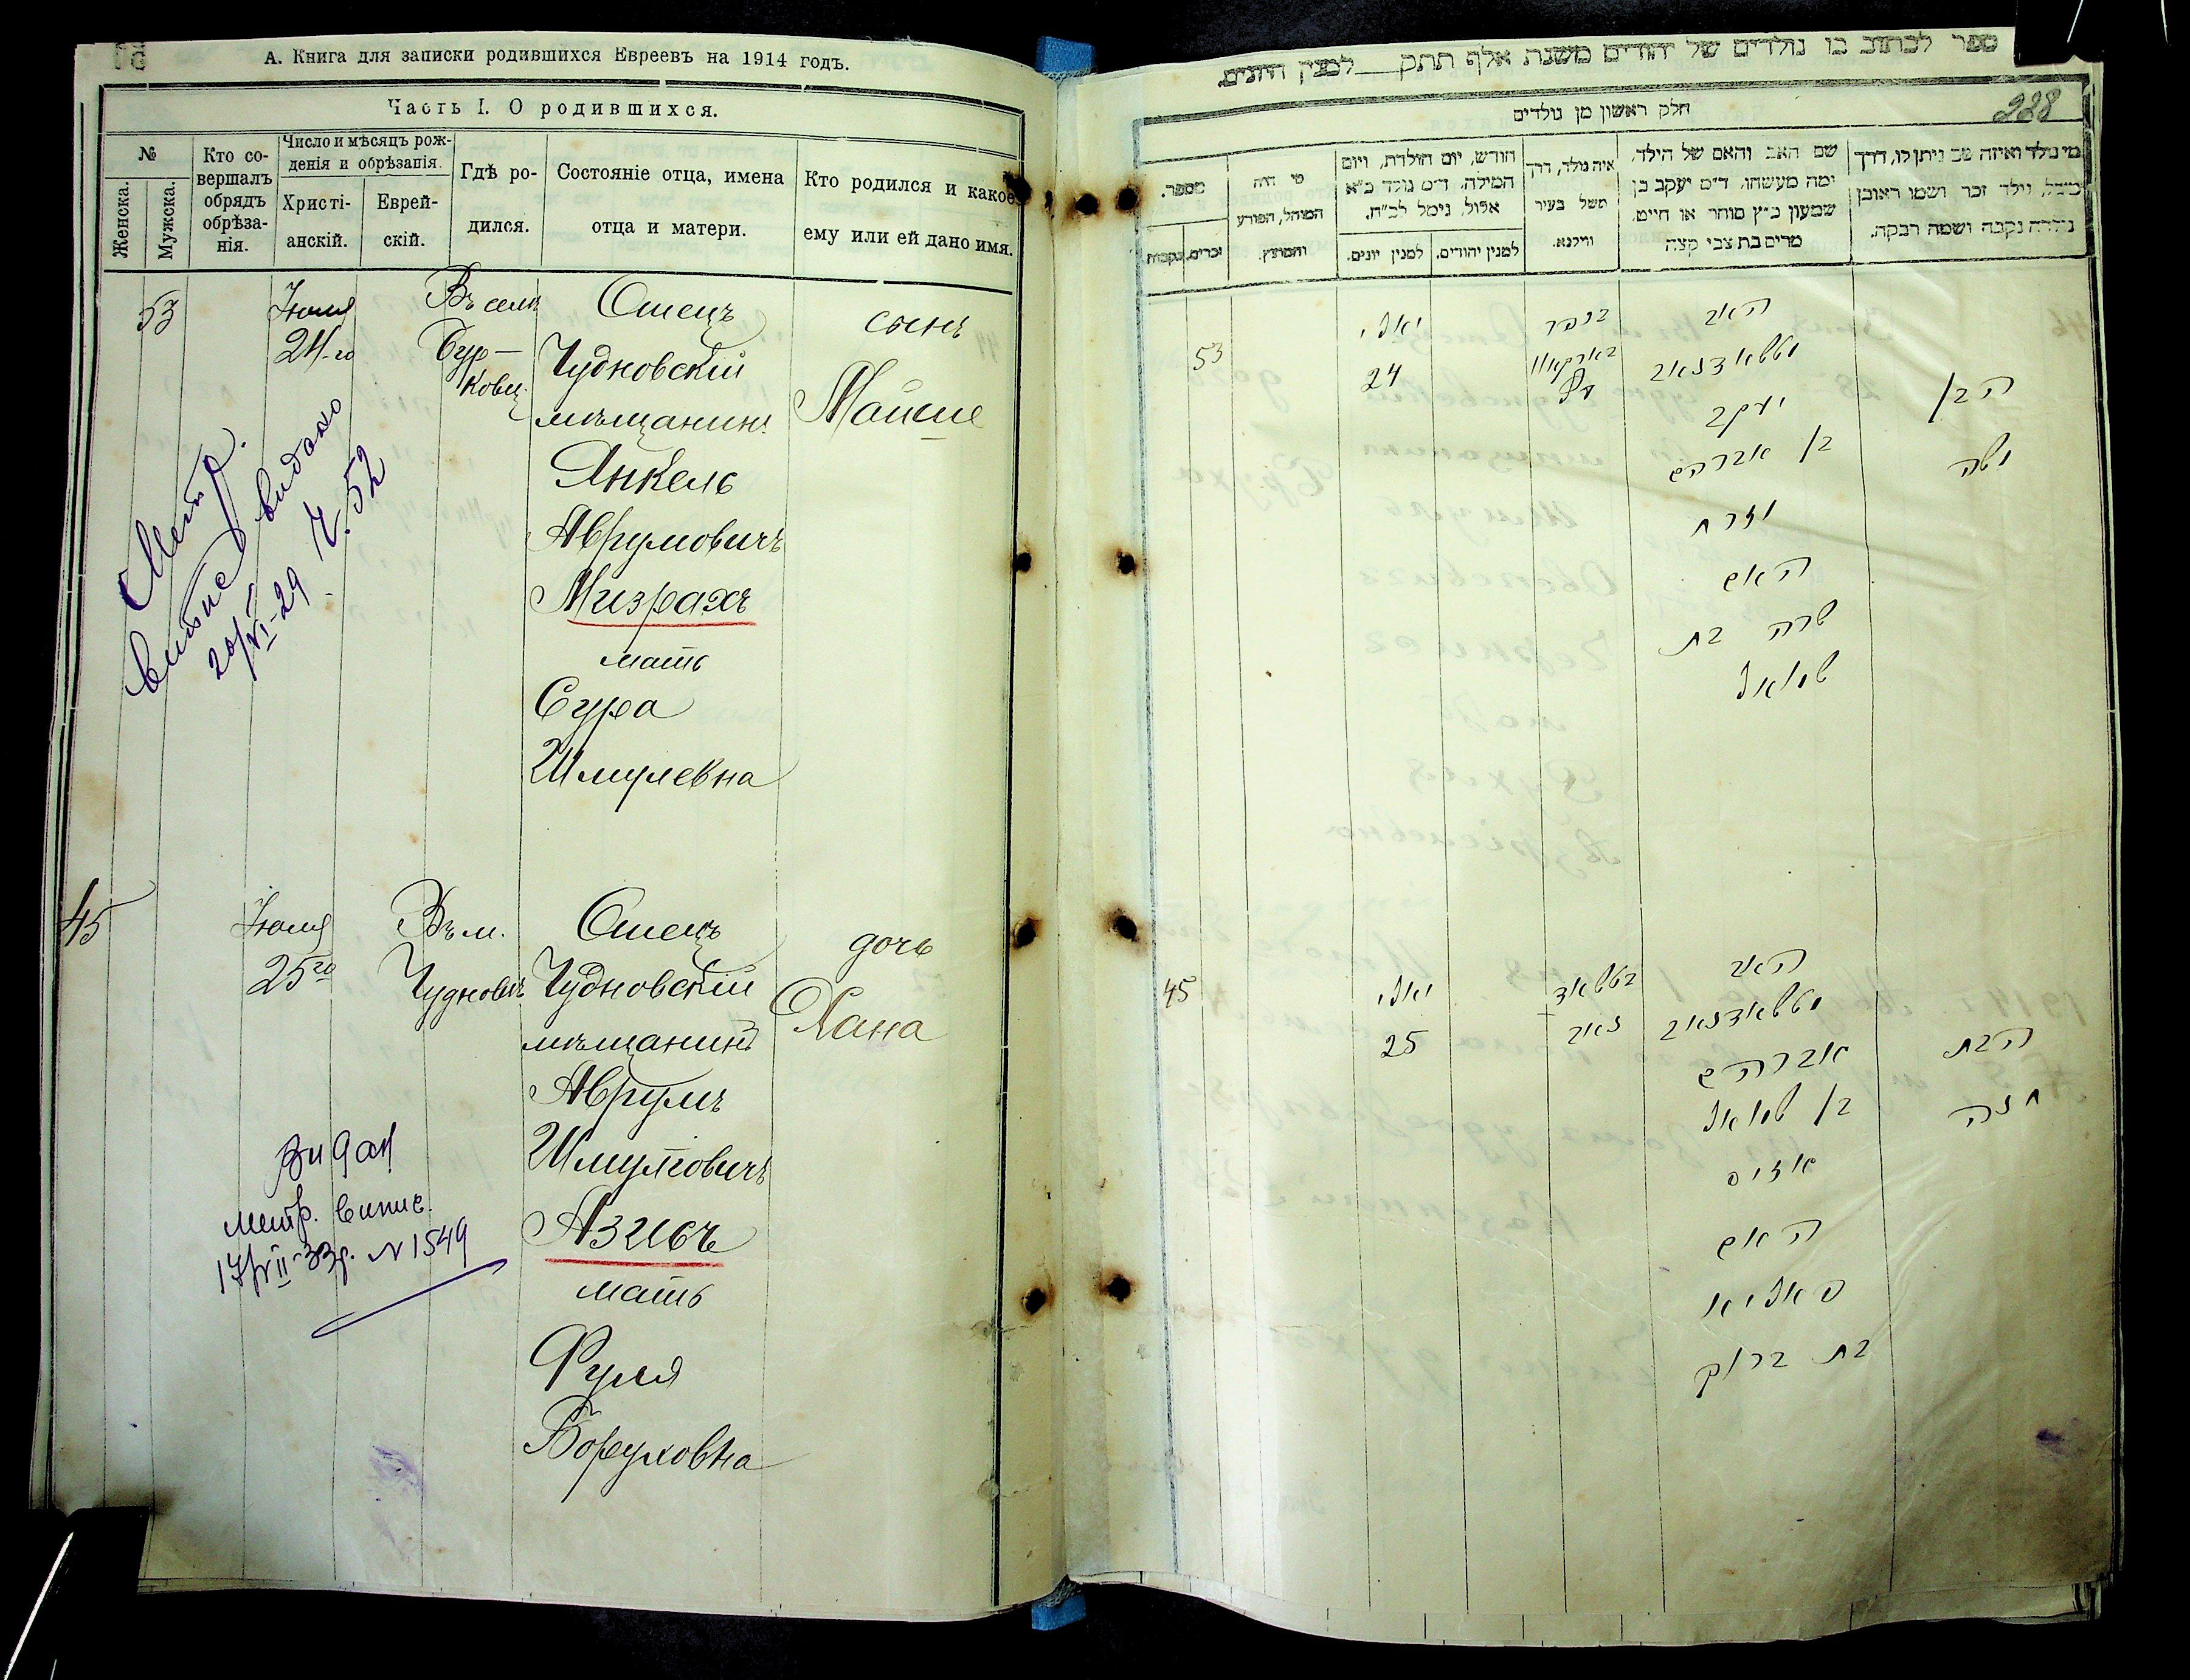 А. Книга для записки родившихся Евреевъ на 1914 годъ.
Часть I. О родившихся.
№
Женска.
Мужска.
Кто со-
вершалъ
обрядъ
обрѣза-
нія.
Число и мѣсяцъ рож-
денія и обрѣзанія.
Христі-
анскій.
Еврей-
скій.
Гдѣ ро-
дился.
Состояніе отца, имена
отца и матери.
Кто родился и какое
ему или ей дано имя.
53
Іюля
24-го
Въ селѣ
Бур-
ковц.
Отецъ
Чудновскій
мѣщанинъ
Янкель
Аврумовичъ
Мизрахъ
мать
Сура
Шмулевна
сынъ
Мойше
Метр.
витяг видано
20/VI-29 Ч. 52
45
Іюля
25го
Въ м.
Чудновѣ
Отецъ
Чудновскій
мѣщанинъ
Аврумъ
Шмулговичъ
Азисъ
мать
Фуля
Боруховна
дочь
Хана
Видан
метр. випис.
17/VII-33р. N 1549
ספר לכתוב בו נולדים של יהודים משנת אלף תתק למנין היונים.
228
חלק ראשון מן נולדים
מספר.
נקבות
זכרים.
מי היה
המוהל, הפורע
והמוצץ.
חודש, יום הולדת, ויום
המילה. ד״מ נולד כ״א
אלול, נימל לכ״ח.
למנין יונים.
למנין יהודים.
איה נולד, דרך
משל בעיר
ווילנא.
שם האב והאם של הילד,
ומה מעשהו. ד״מ יעקב בן
שמעון כ״ץ סוחר או חייט.
מרים בת צבי קצה
מי נולד ואיזה שם ניתן לו, דרך
משל, יולד זכר ושמו ראובן
נולדה נקבה ושמה רבקה.
53
יאלי
24
בכפר
האב
יעקב
בן אברהם
האם
שרה בת
הבן
משה
45
יאלי
25
האב
אברהם
בן
האם
בת ברוך
הבת
חנה